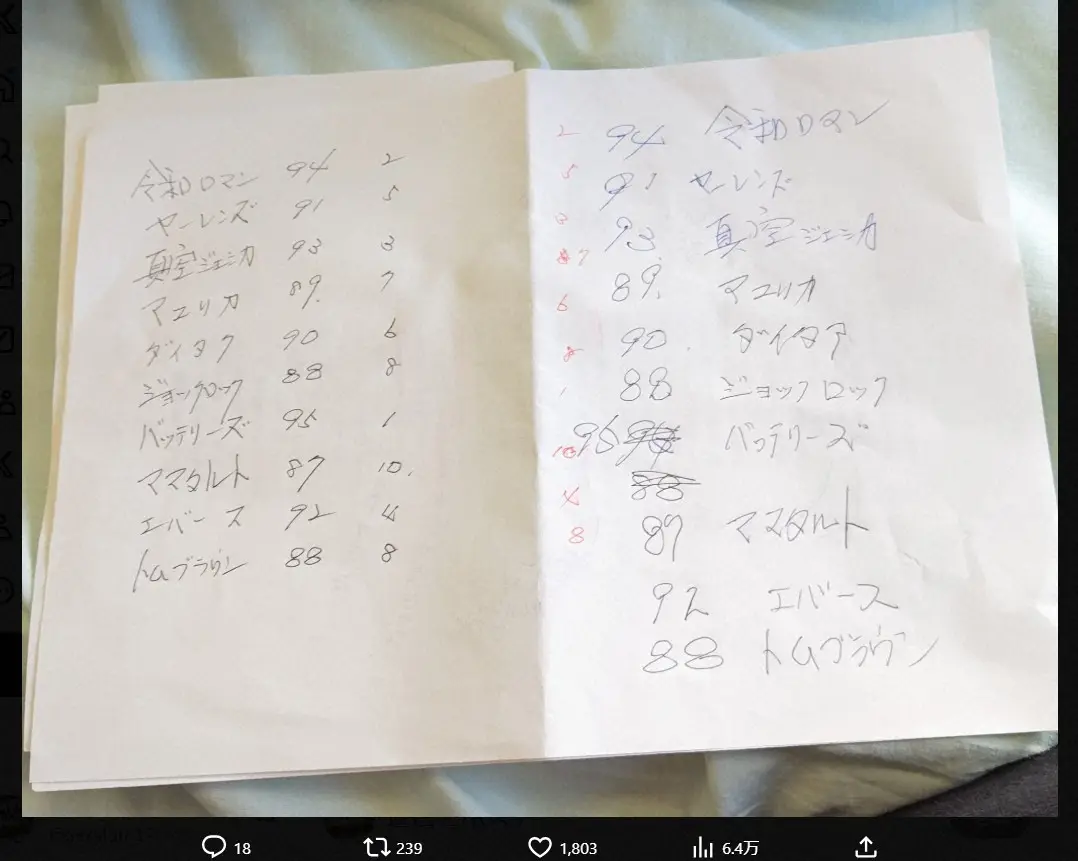 令和ロマン 94 2
ヤーレンズ 91 5
真空ジェシカ 93 3
マユリカ 89. 7
ダイタク 90 6
ジョックロック 88 8
バッテリーズ 95 1
ママタルト 87 10.
エバース 92 4
トムブラウン 88 8
2 94 令和ロマン
5 91 ヤーレンズ
3 93. 真空ジェシカ
7 89. マユリカ
6 90. ダイタク
8 88 ジョックロック
1 95 バッテリーズ
88
10 87 ママタルト
4 92 エバース
8 88 トムブラウン
18 239 1,803 6.4万